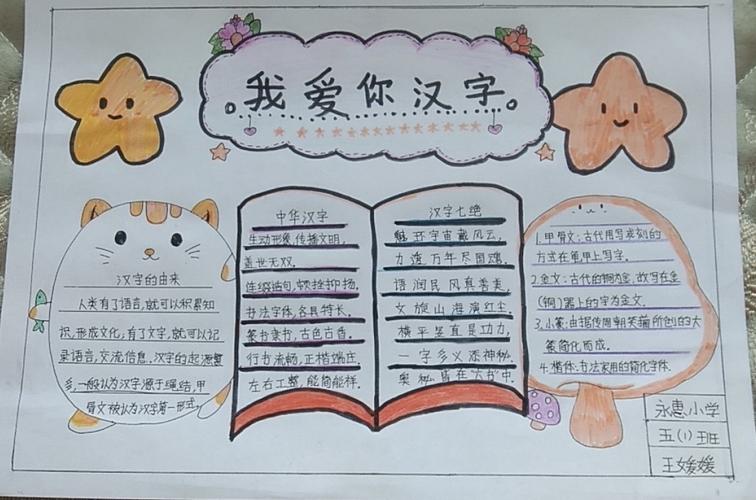 我爱你汉字
汉字的由来
人类有了语言,就可以积累知
识,形成文化,有了文字,就可以记
录语言,交流信息,汉字的起源繁
多,一般认为汉字源于绳结,甲
骨文被认为汉字第一形式,
中华汉字
生动形象,传播文明,
盖世无双,
连缀语句,顿挫抑扬,
书法字体,各具特长,
篆书隶书,古色古香,
行书流畅,正楷端庄
左右工整,能简能祥,
汉字七绝
魅环宇宙戴风云,
力透万年尽国魂,
语润民风真善美,
文旋山海演红尘,
横平竖直是功力,
一字多义添神秘,
奥秘皆在"大书"中,
1.甲骨文:古代用写来刻的
方式在龟甲上写字。
2.金文:古代的铜为金,故写在金
(铜)器上的字为金文.
3.小篆:由据传周朝
所创的大
篆简化而成.
4.楷体:书法家用的简化字体.
永惠小学
五(1)班
王媛媛